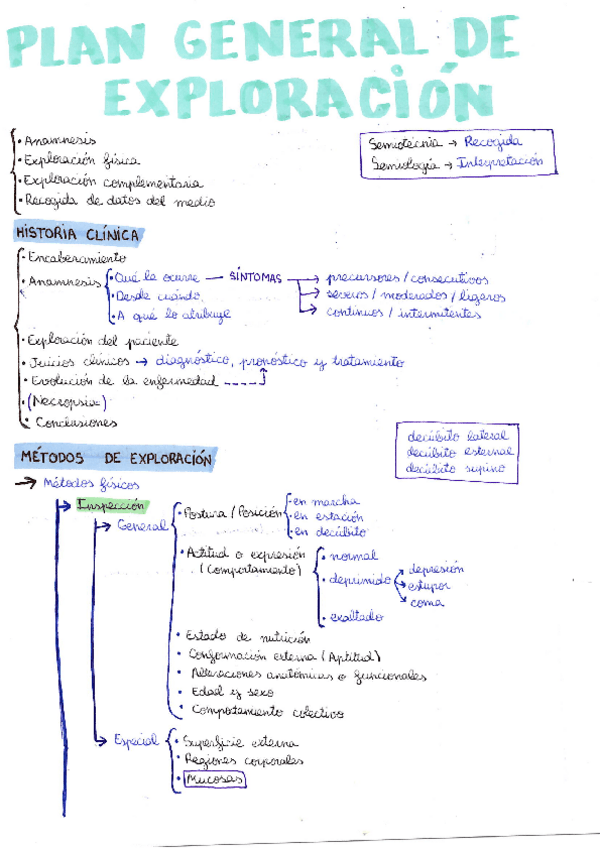 PLAN GENERAL DE
EXPLORACIÓN
• Anamnesis
• Exploración física
• Exploración complementaria
• Recogida de datos del medio
Semiotecnia → Recogida
Semiología → Interpretación
HISTORIA CLÍNICA
• Encabezamiento
• Anamnesis
• Qué le ocurre — SÍNTOMAS
→ precursores / consecutivos
→ severos / moderados / ligeros
→ continuos / intermitentes
• Desde cuándo
• A qué lo atribuye
• Exploración del paciente
• Juicios clínicos → diagnóstico, pronóstico y tratamiento
• Evolución de la enfermedad
• (Necropsia)
• Conclusiones
decúbito lateral
decúbito esternal
decúbito supino
MÉTODOS DE EXPLORACIÓN
→ Métodos físicos
→ Inspección
→ General
• Postura / Posición
• en marcha
• en estación
• en decúbito
• Actitud o expresión
(Comportamiento)
• normal
• deprimido
depresión
estupor
coma
• exaltado
• Estado de nutrición
• Conformación externa (Aptitud)
• Alteraciones anatómicas o funcionales
• Edad y sexo
• Comportamiento colectivo
→ Especial
• Superficie externa
• Regiones corporales
• Mucosas